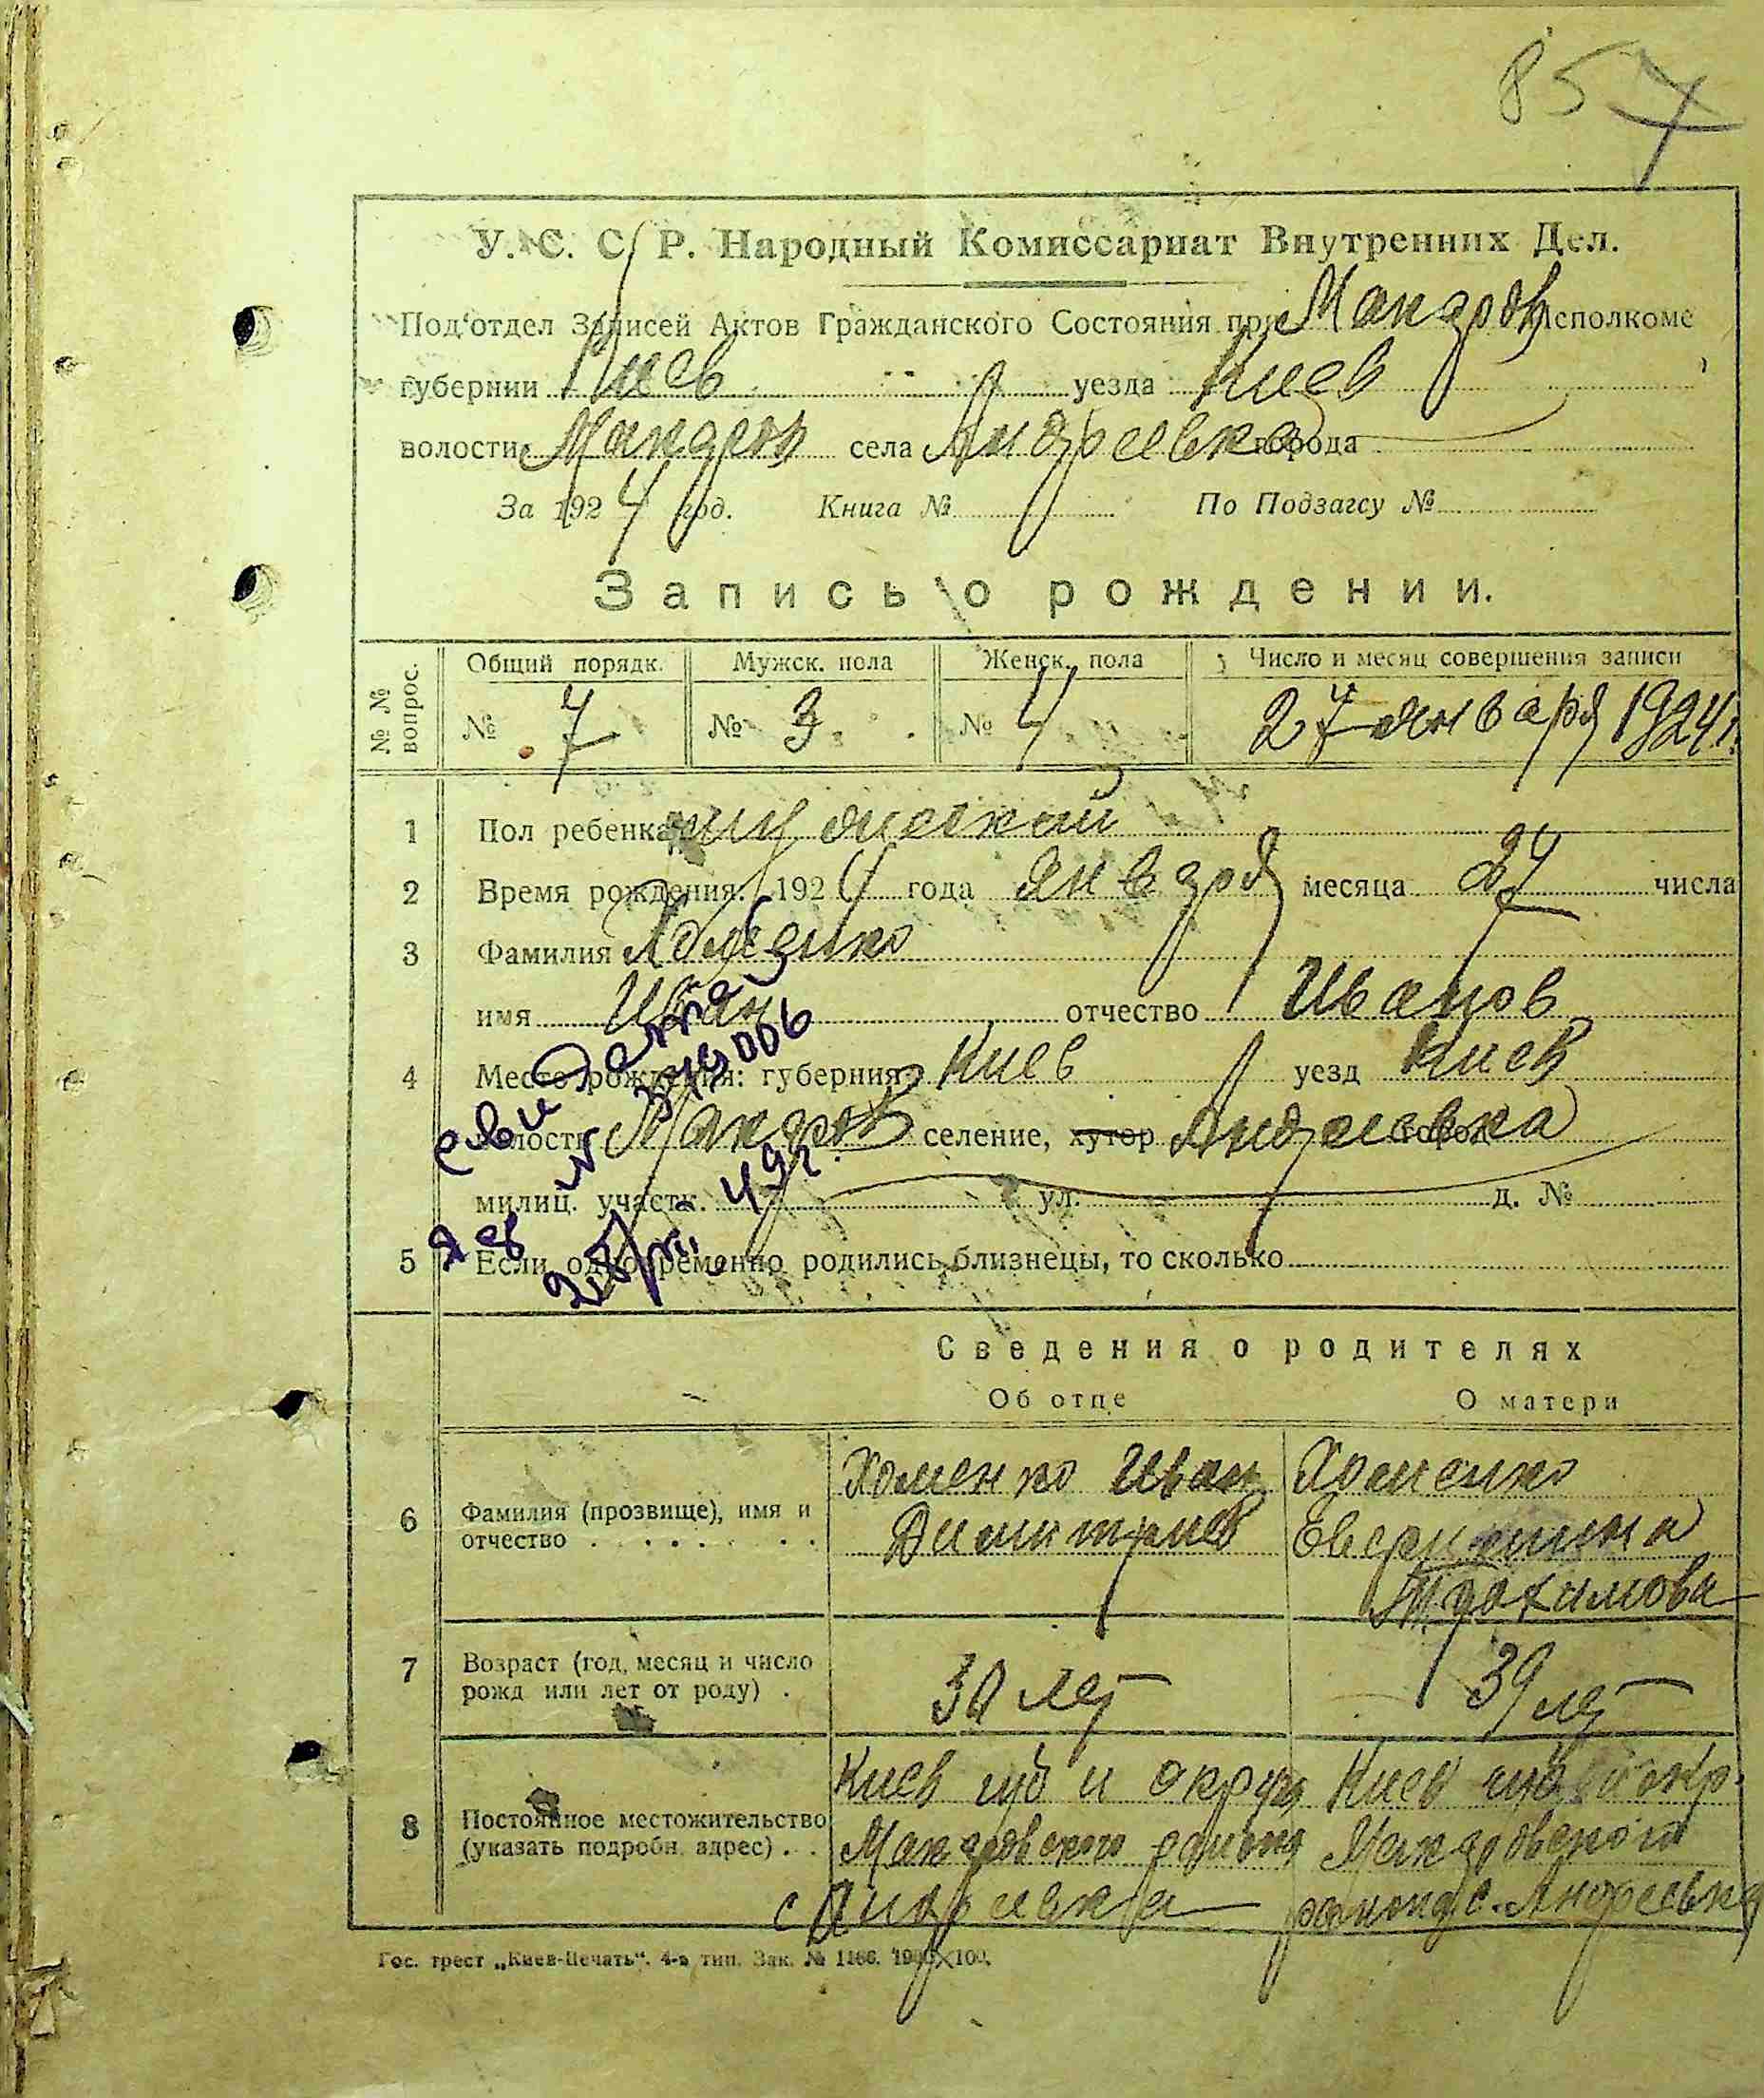 857
У. С. С. Р. Народный Комиссариат Внутренних Дел.
Под'отдел Записей Актов Гражданского Состояния при Макаров Исполкоме
губернии Киев уезда Киев
волости Макаров села Андреевка города
За 1924 год. Книга № По Подзагсу №
Запись о рождении.
№ № вопрос. Общий порядк. Мужск. пола Женск. пола Число и месяц совершения записи
№ 7 № 3 № 4 27 января 1924 г.
1 Пол ребенка мужеский
2 Время рождения: 1924 года января месяца 27 числа
3 Фамилия Хоменко
имя Иван отчество Иванов
4 Место рождения: губерния Киев уезд Киев
волость Макаров селение, хутор Андреевка город
милиц. участк. ул. д. №
5 Если одновременно родились близнецы, то сколько
Сведения о родителях
Об отце О матери
6 Фамилия (прозвище), имя и отчество
Хоменко Иван Димитриев
Хоменко Трохимова
7 Возраст (год, месяц и число рожд или лет от роду)
лет
39 лет
8 Постоянное местожительство (указать подробн. адрес)
Киев губ и округ Макаровского района с Андреевка
Киев губ и окр. Макаровского района с. Андреевка
Гос. трест „Киев-Печать“. 4-я тип. Зак. № 1166.